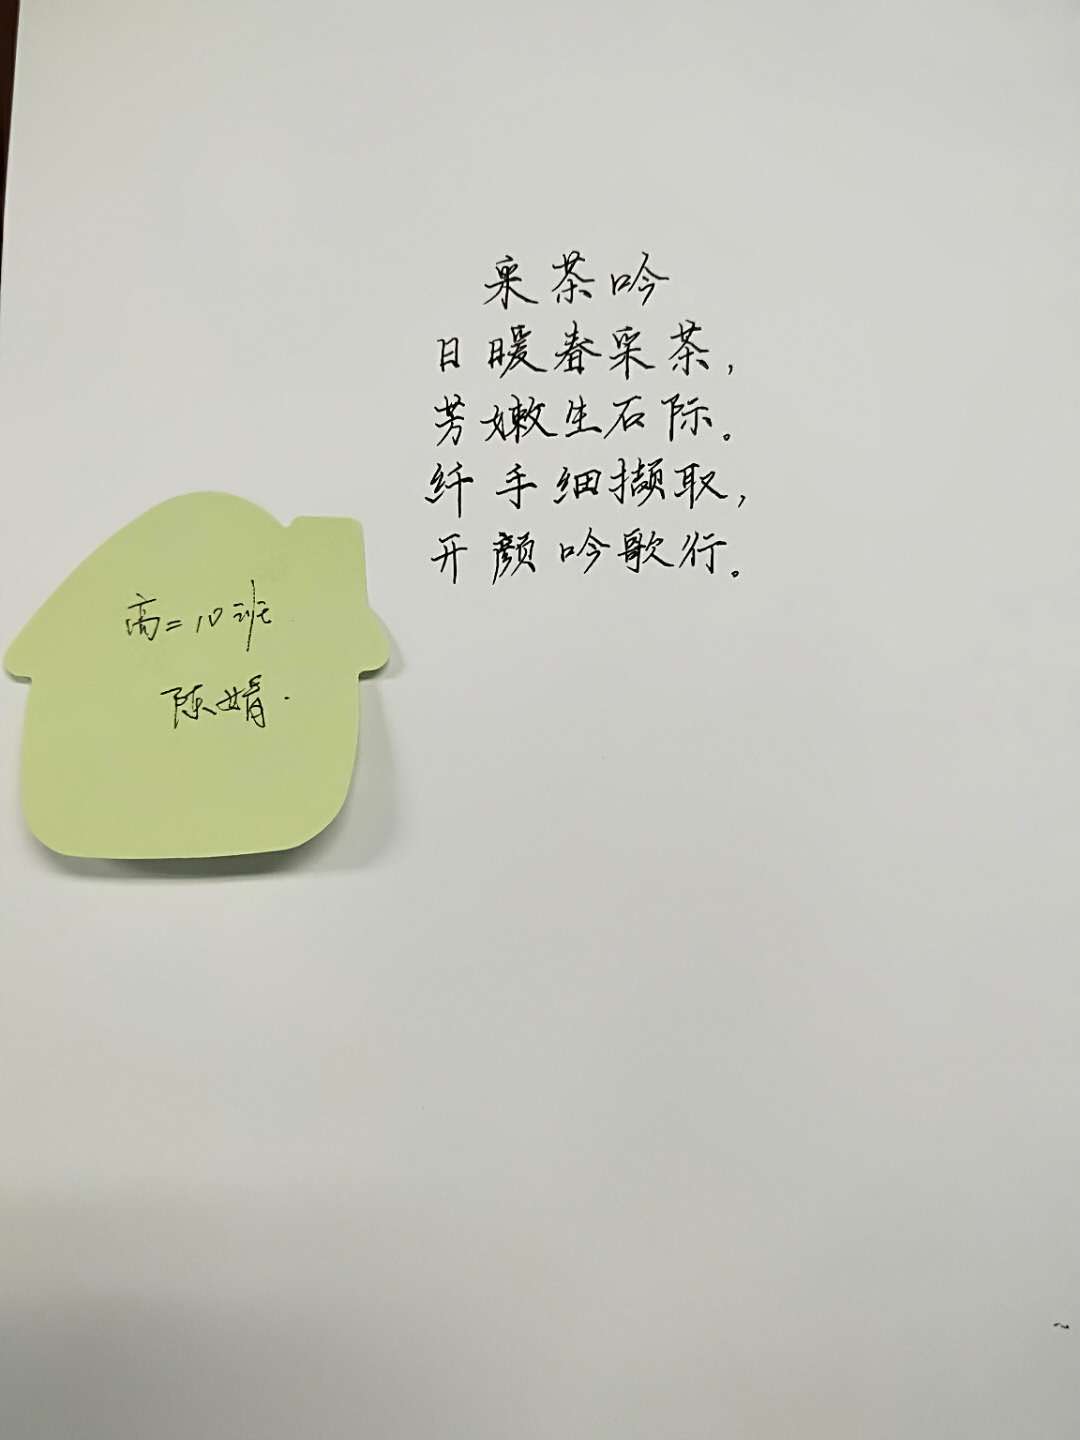 采茶吟
日暖春采茶，
芳嫩生石际。
纤手细撷取，
开颜吟歌行。
高二10班
陈婧.